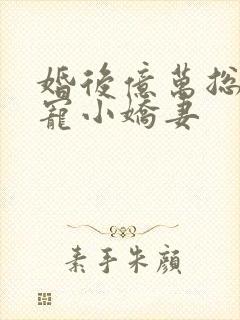 婚後億萬総
寵小嬌妻
素手朱顔